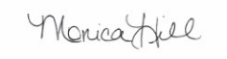 Monica Hill